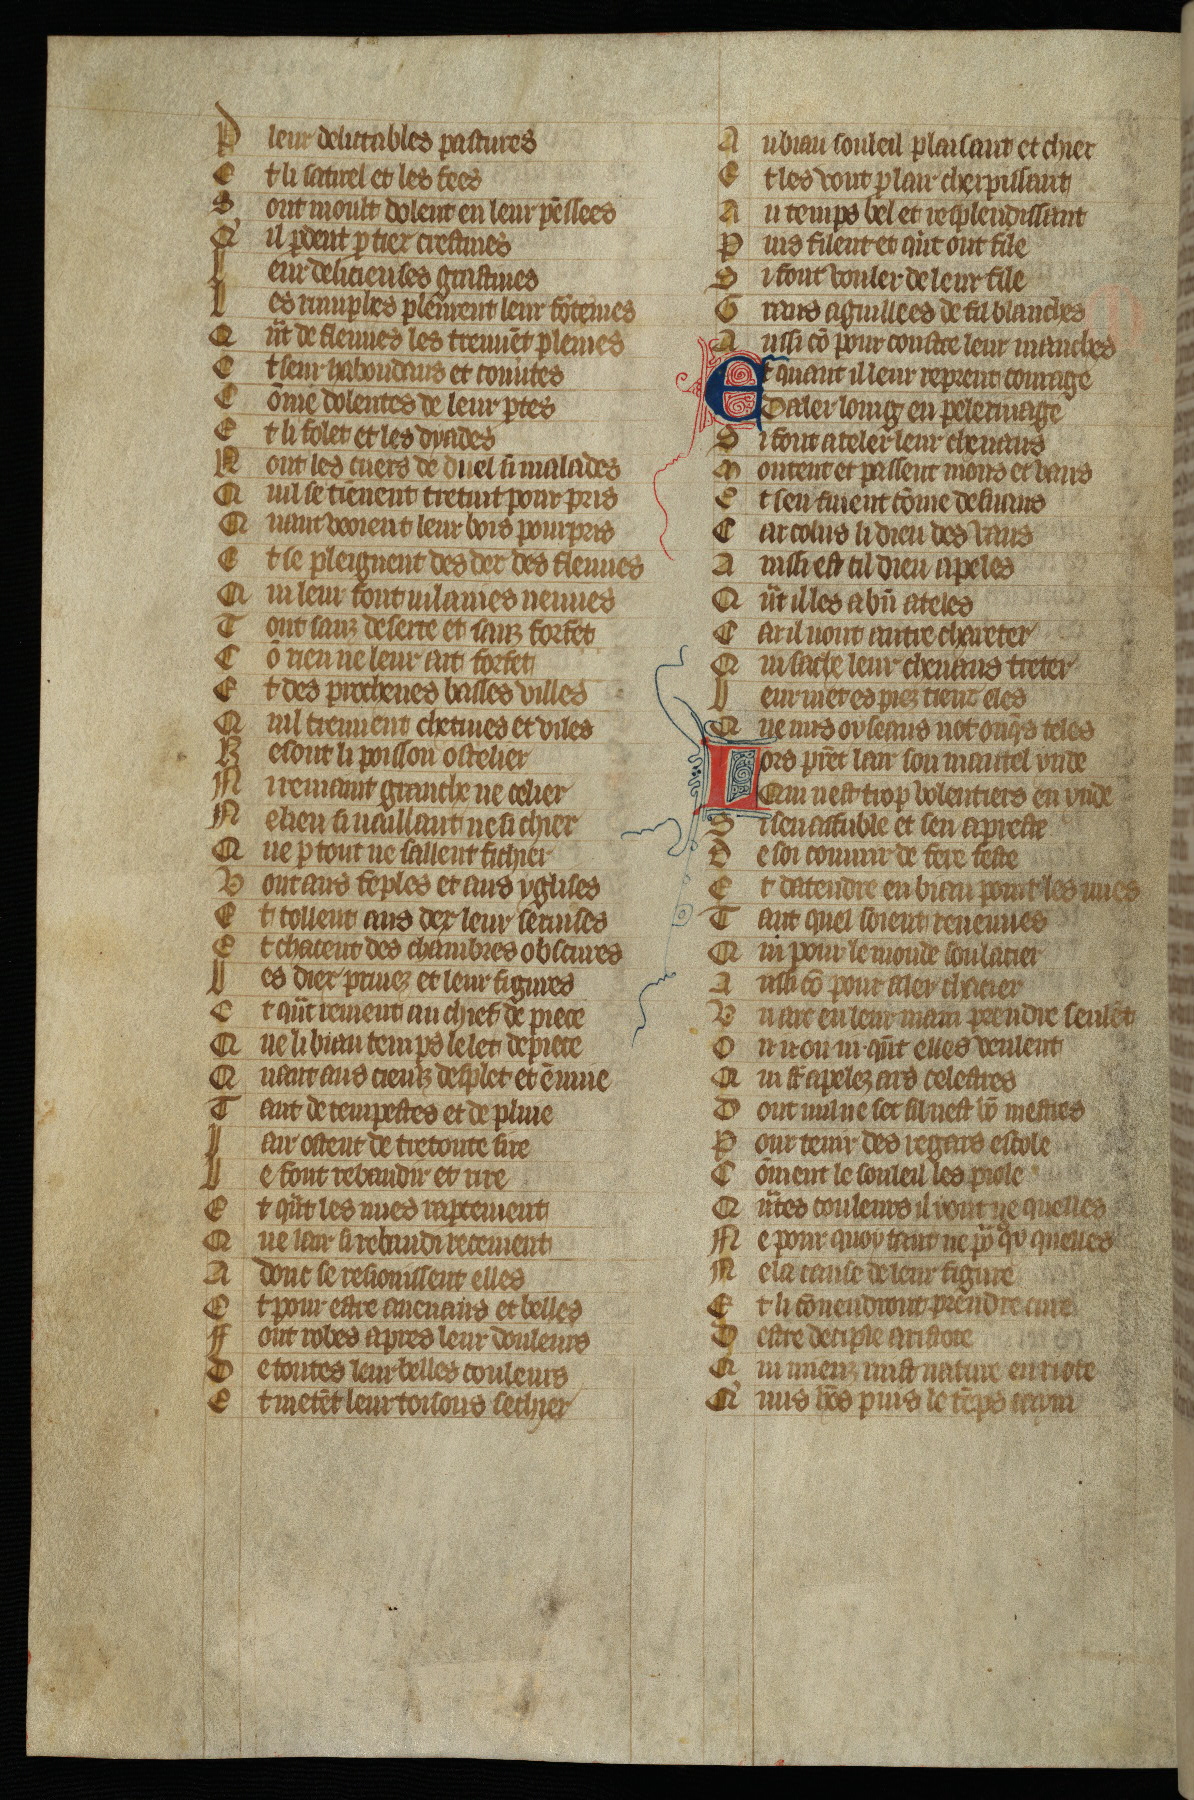 P leur delitables pastures
E t li satirel et les fees
S ont moult dolent en leur pēssees
Q' il pdent p tiex cretines
L eur delicieuses gastines
L es nimphes pleurent leur fōteines
Q ūt de fleuves les treuuēt pleines
E t seur habondans et couutes
C ōme dolentes de leur ptes
E t li folet et les dyades
R ont les cuers de duel si malades
Q uil se tiēnent tretuit pour pris
Q uant voient leur bois pourpris
E t se pleignent des dex des fleuues
Q ui leur font vilanies neuues
T out sanz deserte et sanz forfet
C ō rien ne leur ait forfet
E t des prochenes basses villes
Q uil tiennent chetiues et viles
R esont li poisson ostelier
N i remaint granche ne celier
N e lieu si vaillant ne si chier
Q ue p tout ne saillent fichier
V ont aus tēples et aus yglises
E t tollent aus dex leur seruises
E t chacent des chambres obscures
L es diex priuez et leur figures
E t qūt reuient au chief de piece
Q ue li biau temps le let depiece
Q uant aus cieux desplet et ēnuie
T ant de tempestes et de pluie
L air ostent de tretoute sire
L e font rebaudir et rire
E t qūt les nues raperceiuent
Q ue lair si rebaudi receiuent
A donc se resioissent elles
E t pour estre auenans et belles
F ont robes apres leur douleurs
D e toutes leur belles couleurs
E t metēt leur toisons sechier
A u biau souleil plaisant et chier
E t les vont p lair cherpissant
A u temps bel et resplendissant
P uis filent et qūt ont file
S i font vouler de leur file
G rans aguillees de fil blanches
A ussi cō pour coustre leur manches
Et quant il leur reprent courage
Daler loing en pelerinage
S i font ateler leur cheuaus
M ontent et passent mons et vaus
E t sen fuient cōme desuans
C ar eolus li dieu des vans
A inssi est cil dieu apeles
Q ūt il les a bn̄ ateles
C ar il nont autre chareter
Q ui sache leur cheuaus treter
L eur met es piez tieux eles
Q ue nus oyseaus not onq̄s teles
Lors prēt lair son mantel ynde
Qui uest trop volentiers en ynde
S i sen affuble et sen apreste
D e soi couurir de fere feste
E t datendre en biau point les nues
T ant quel soient reuenues
Q ui pour le monde soulacier
A ussi cō pour aler chacier
V n arc en leur main prendre seulēt
O u ii ou iii qūt elles veulent
Q ui st̄ apelez ars celestres
D ont nul ne set sil nest bō mestres
P our tenir des regars escole
C ōment le souleil les piole
Q ūtes couleurs il ront ne quelles
N e pour quoy tant ne pr̄ qy quelles
N e la cause de leur figure
E t li cōuendroit prendre cure
D estre deciple aristote
Q ui mieux mist nature en note
Q' nus hōs puis le tēps caym